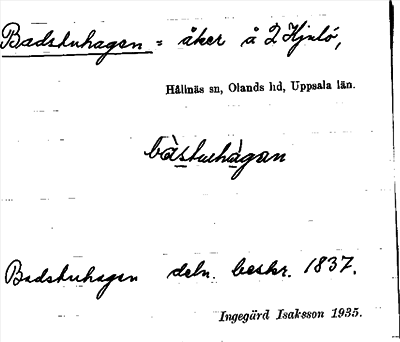 Badstuhagen = åker å 2 Hjulö,
Hållnäs sn, Olands hd, Uppsala län.
bàstuhàgan
Badstuhagen deln. beskr. 1837.
Ingegärd Isaksson 1935.